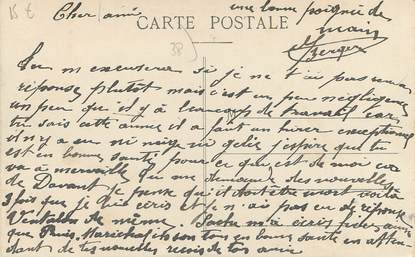 15 €
Cher ami
une bonne poignée de
main
CARTE POSTALE
38
Berger
Tu m excusera si je ne t ai pas
réponse plutôt mais c'est un peu négligence
un peu qu'il y a beaucoup de travail car
tu sais cette année il a fait un hiver exceptionnel
il n y a eu ni neige ni gelée j'espère que tu
est en bonne santé pour ce que est de moi ça
va à merveille tu me demande des nouvelles
de Davant je pense qu il doit être mort voilà
3 fois que je lui écris et je n ai pas eu de réponse
de même. m a écris
que Marichal ils son tous en bonne santé en atten
dant de tes nouvelles recois de ton amie